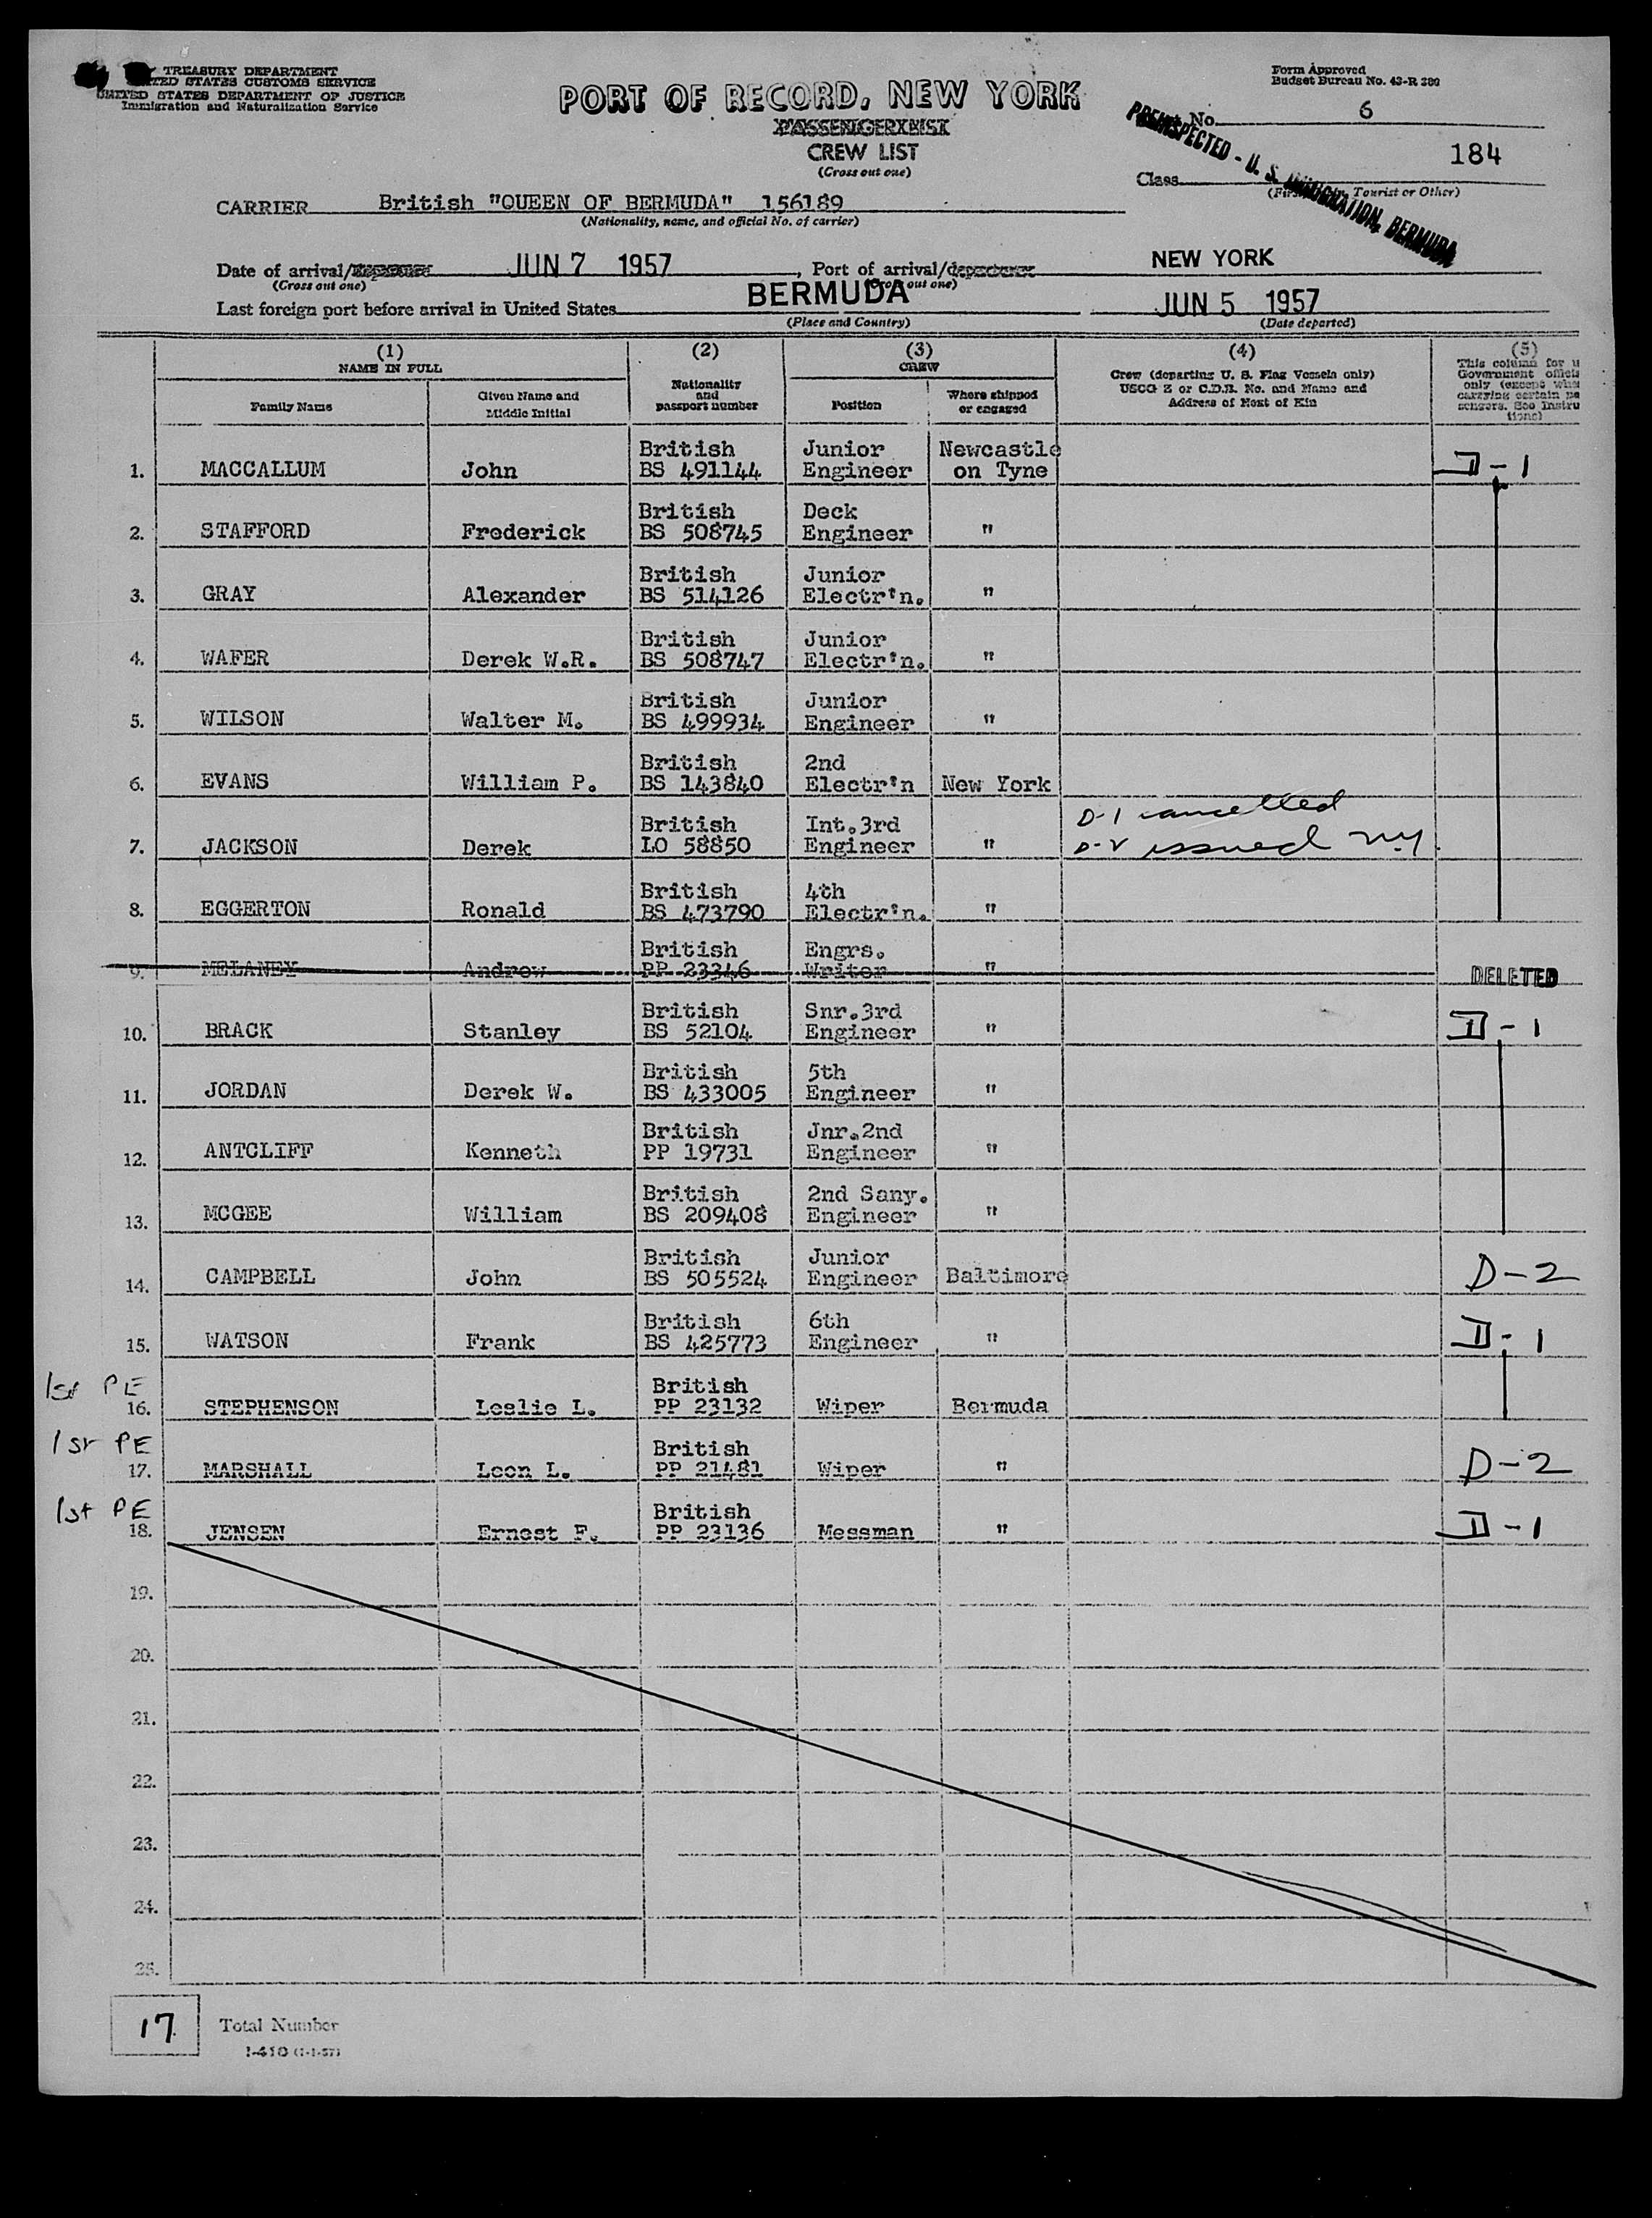 TREASURY DEPARTMENT
UNITED STATES CUSTOMS SERVICE
UNITED STATES DEPARTMENT OF JUSTICE
Immigration and Naturalization Service
Form Approved
Budget Bureau No. 43-R
PORT OF RECORD, NEW YORK
PASSENGER LIST
CREW LIST
(Cross out one)
No. 6
184
PREINSPECTED - U. S. IMMIGRATION, BERMUDA
Class
Tourist or Other)
CARRIER British "QUEEN OF BERMUDA" 156189
(Nationality, name, and official No. of carrier)
Date of arrival/departure JUN 7 1957, Port of arrival/departure NEW YORK
(Cross out one) (Cross out one)
Last foreign port before arrival in United States BERMUDA JUN 5 1957
(Place and Country) (Date departed)
(1) NAME IN FULL (2) (3) CREW (4) (5)
Family Name Given Name and Middle Initial Nationality and passport number Position Where shipped or engaged Crew (departing U. S. Flag Vessels only) USCG Z or C.D.B. No. and Name and Address of Next of Kin This column for u Government offici only (except whe carrying certain pa sengers. See Instru tions)
1. MACCALLUM John British BS 491144 Junior Engineer Newcastle on Tyne D-1
2. STAFFORD Frederick British BS 508745 Deck Engineer "
3. GRAY Alexander British BS 514126 Junior Electr'n. "
4. WAFER Derek W.R. British BS 508747 Junior Electr'n. "
5. WILSON Walter M. British BS 499934 Junior Engineer "
6. EVANS William P. British BS 143840 2nd Electr'n New York
7. JACKSON Derek British LO 58850 Int.3rd Engineer " D-1 cancelled D-2 issued N.Y.
8. EGGERTON Ronald British BS 473790 4th Electr'n. "
9. MELANEY Andrew British PP 23346 Engrs. Writer " DELETED
10. BRACK Stanley British BS 52104 Snr.3rd Engineer " D-1
11. JORDAN Derek W. British BS 433005 5th Engineer "
12. ANTCLIFF Kenneth British PP 19731 Jnr.2nd Engineer "
13. MCGEE William British BS 209408 2nd Sany. Engineer "
14. CAMPBELL John British BS 505524 Junior Engineer Baltimore D-2
15. WATSON Frank British BS 425773 6th Engineer " D-1
1st PE
16. STEPHENSON Leslie L. British PP 23132 Wiper Bermuda
1st PE
17. MARSHALL Leon L. British PP 21481 Wiper " D-2
1st PE
18. JENSEN Ernest F. British PP 23136 Messman " D-1
19.
20.
21.
22.
23.
24.
25.
17 Total Number
I-418 (1-1-57)